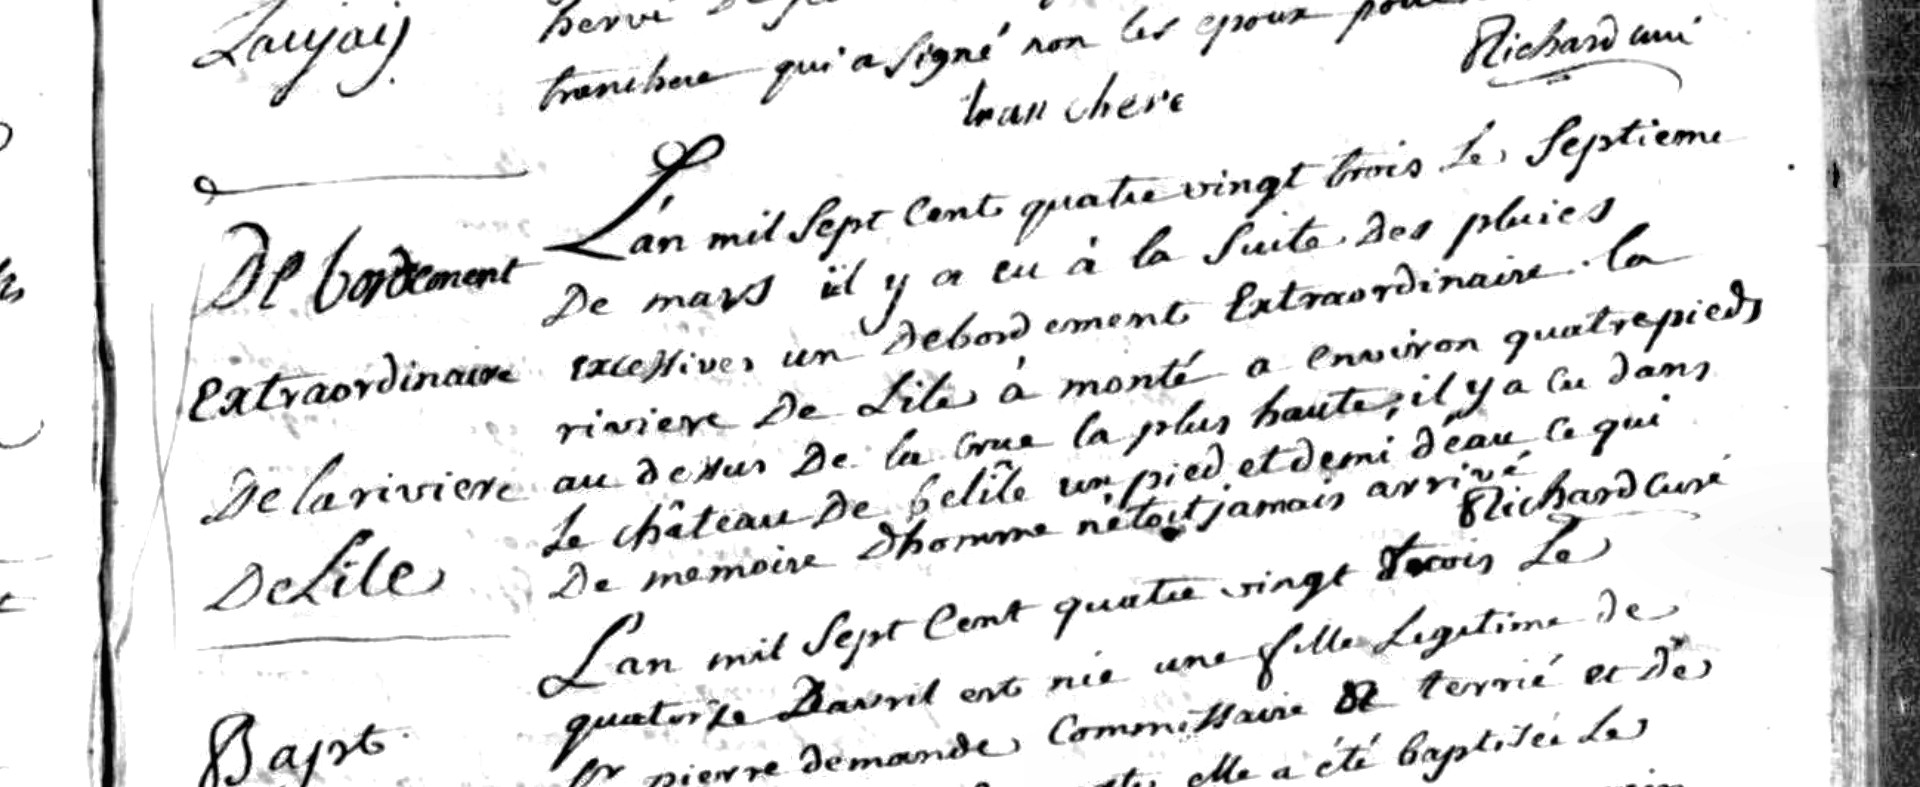 Laujaij
hervé
tranchere qui a signé non les epoux
tranchere
Richard curé
Debordement
Extraordinaire
De la riviere
De Lile
L'an mil Sept Cent quatre vingt trois Le Septieme
De mars il y a eu à la Suite Des pluies
excessives un Debordement Extraordinaire. la
riviere De Lile à monté a environ quatre pieds
au dessus De la Crue la plus haute, il y a eu dans
Le château De belîle un pied et demi d'eau Ce qui
De memoire Dhomme n'étoit jamais arrivé
Richard curé
Bapt.
L'an mil Sept Cent quatre vingt trois Le
quatorze Davril est née une fille Legitime de
Sr pierre demande Commissaire A terrié et De
elle a été baptisée Le